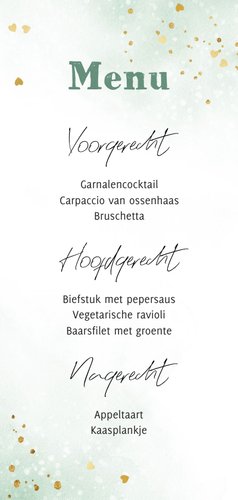 Menu
Voorgerecht
Garnalencocktail
Carpaccio van ossenhaas
Bruschetta
Hoofdgerecht
Biefstuk met pepersaus
Vegetarische ravioli
Baarsfilet met groente
Nagerecht
Appeltaart
Kaasplankje